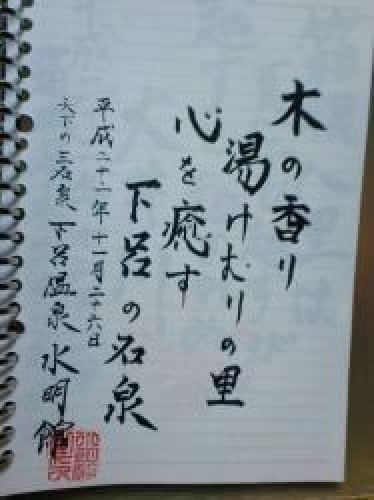 木の香り
湯けむりの里
心を癒す
下呂の名泉
平成二十二年十一月二十六日
天下の三名泉下呂温泉水明館